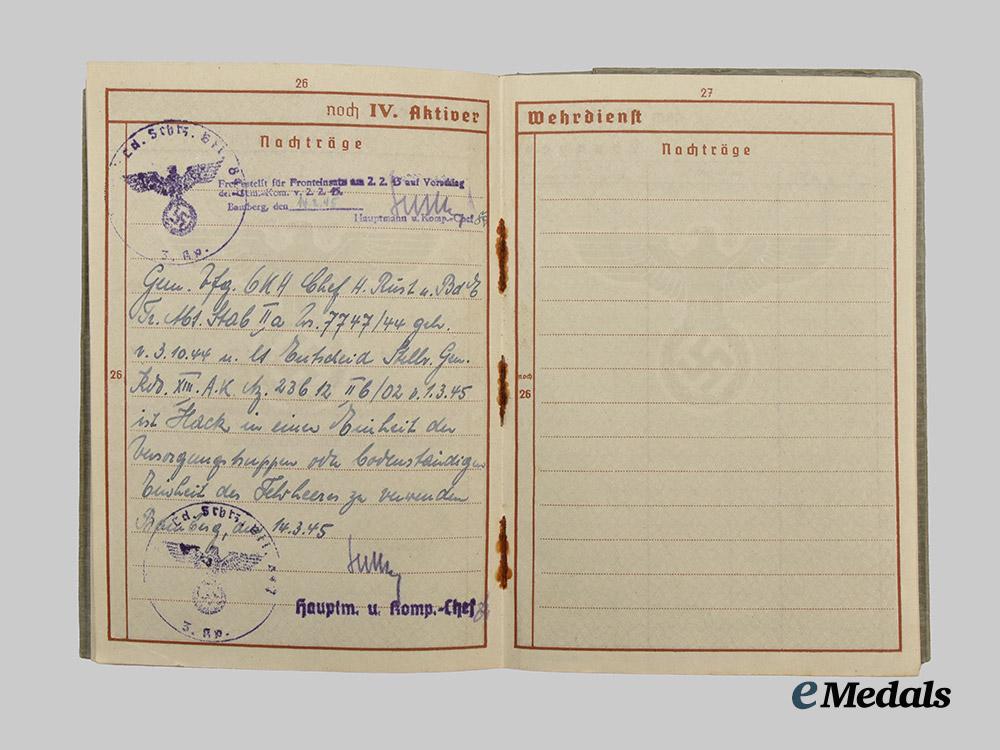 26
noch IV. Aktiver
Nachträge
Ld. Schtz. Btl. 847
3. Kp.
Freigestellt für Fronteinsatz am 2. 2. 45 auf Vorschlag
der Kom. v. 2. 2. 45.
Bamberg, den
Hauptmann u. Komp.-Chef
Gem. Vfg. OKH Chef H. Rüst u. BdE
Tr. Abt. Stab II a Nr. 7747/44 geh.
v. 3.10.44 u. lt Entscheid Stellv. Gen.
26.
Kdo. XIII. A.K Az. 23b 12 IIb/02 v. 1.3.45
ist Hack in einer Einheit der
Versorgungstruppen oder bodenständigen
Einheit des Feldheeres zu verwenden
Bamberg, den 14.3.45
Ld. Schtz. Btl. 847
3. Kp.
Hauptm. u. Komp.-Chef
27
Wehrdienst
Nachträge
noch
26
eMedals